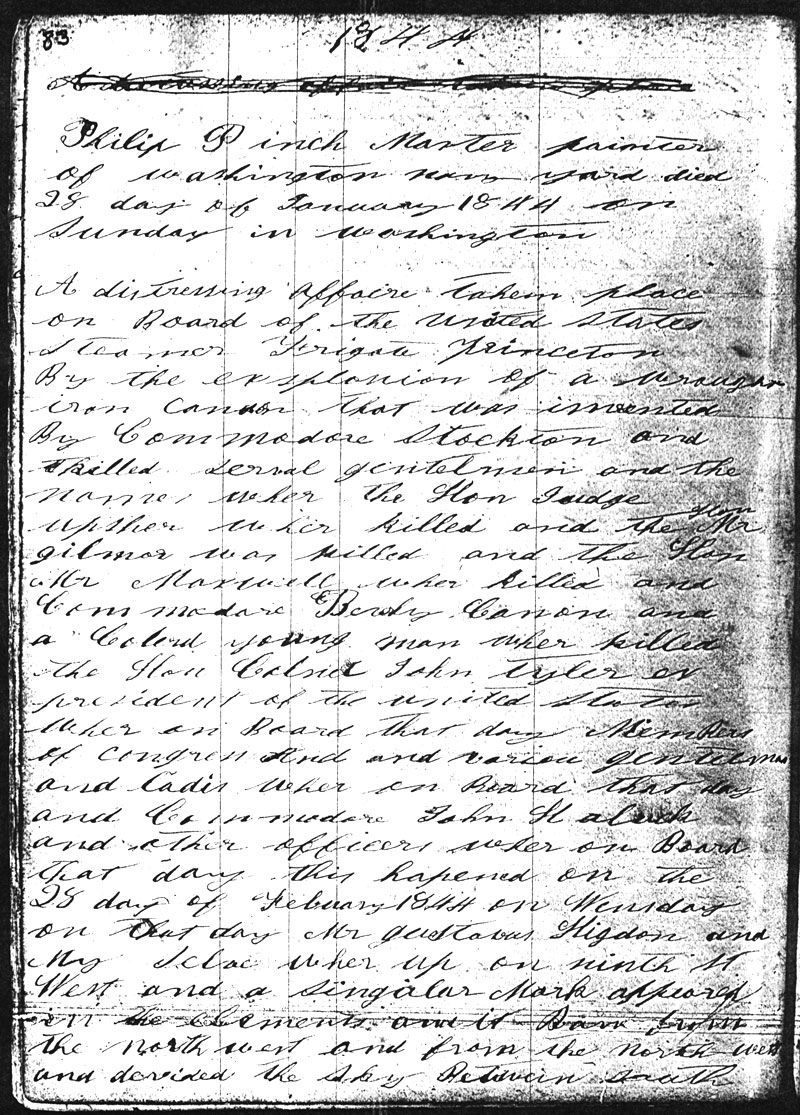 83
1844
A distressing affair taken place
Philip P inch Master painter
of washington navy yard died
28 day of January 1844 on
Sunday in washington
A distressing affaire taken place
on Board of the United States
Steamer Frigate Princeton
By the explosion of a wrough
iron Canon that was invented
By Commodore Stockton and
killed serval gentelmen and the
names wher the Hon Judge
upsher wher killed and the Hon Mr
gilmor was killed and the Hon
Mr Maxwell wher killed and
Commodore Canon and
a Colerd young man wher killed
the Hon Colnel John tyler ex
president of the united States
wher on Board that day Members
of congress and and various gentelmen
and Ladis wher on Board that day
and Commodore John H
and other officers wher on Board
that day this hapened on the
28 day of Febuary 1844 on Wensday
on that day Mr gustavus Higdon and
My Selve wher up on ninth St
West and a singular Mark appeared
in the Elements and it Bare from
the north west and from the north west
and devided the sky Betwein south